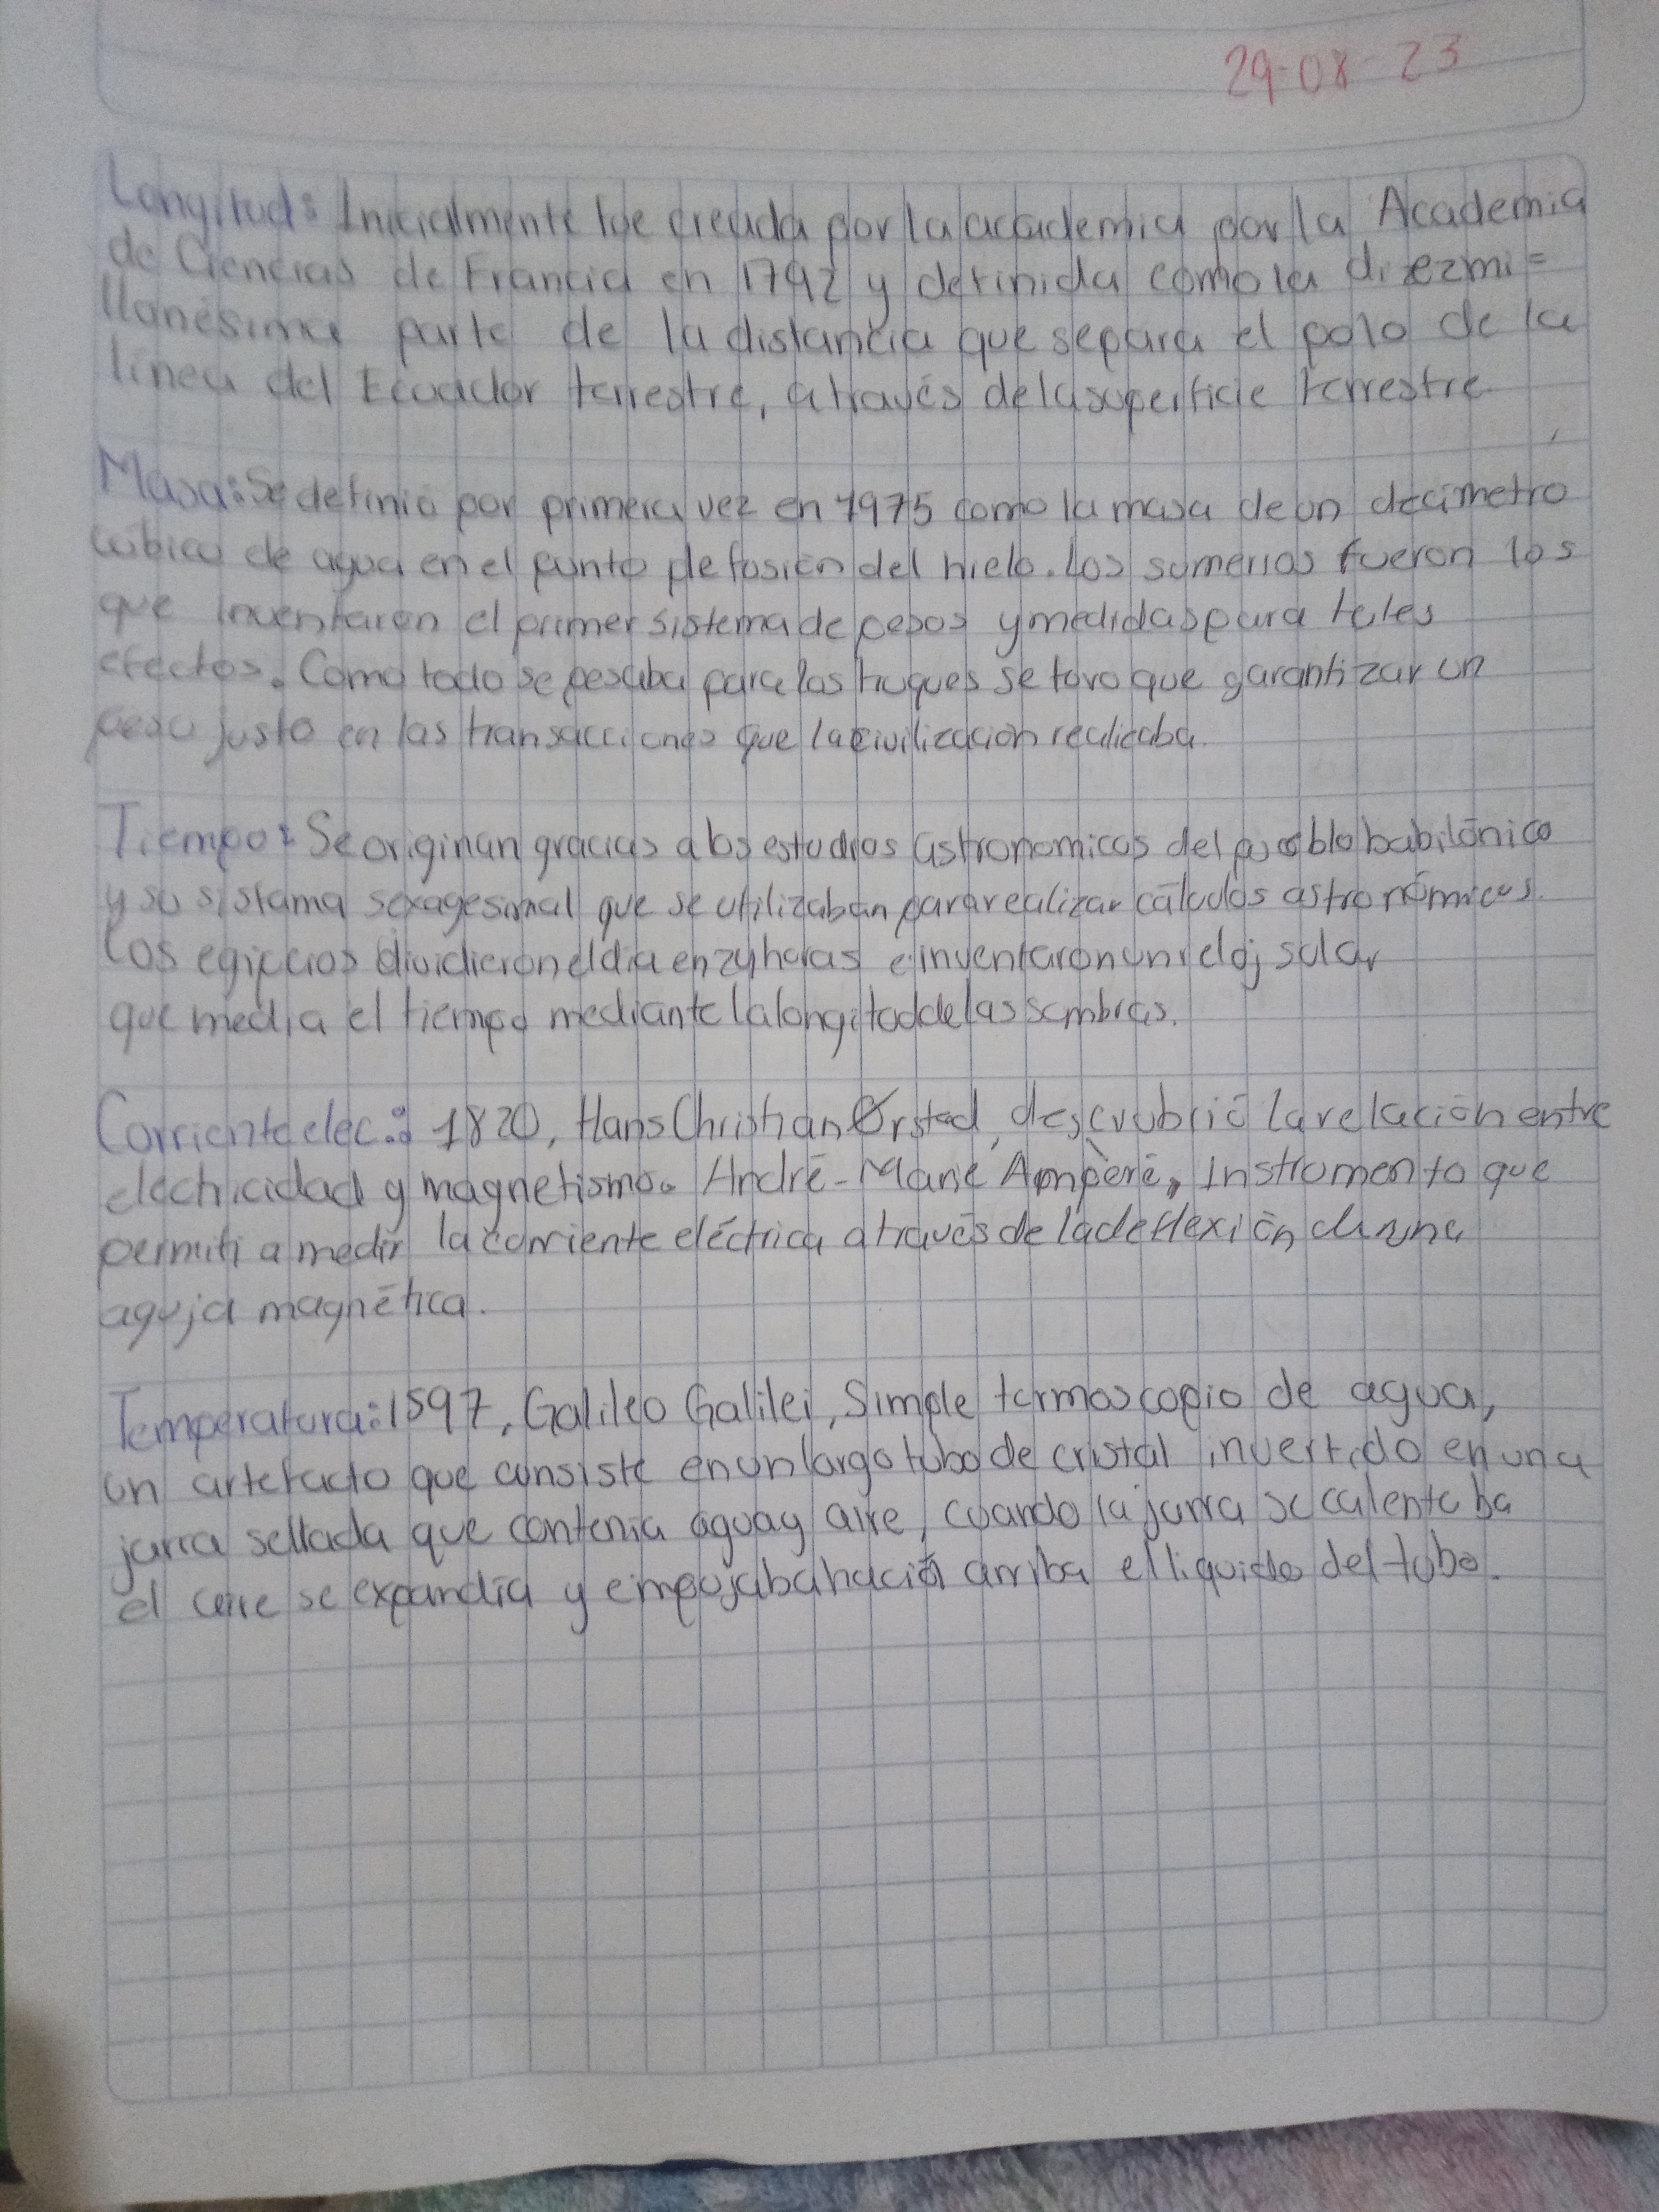 29-08-23
Longitud: Inicialmente fue creada por la academia por la Academia
de Ciencias de Francia en 1792 y definida como la diezmi=
llonésima parte de la distancia que separa el polo de la
línea del Ecuador terrestre, a través de la superficie terrestre.
Masa: Se definio por primera vez en 1975 como la masa de un decimetro
cúbico de agua en el punto de fusión del hielo. Los sumerios fueron los
que inventaron el primer sistema de pesos y medidas para tales
efectos. Como todo se pesaba para los truques se tuvo que garantizar un
peso justo en las transacciones que la civilización realizaba.
Tiempo: Se originan gracias a los estudios astronomicos del pueblo babilónico
y su sistama sexagesimal que se utilizaban para realizar cálculos astronómicos.
Los egipcios dividieron el dia en 24 horas e inventaron un reloj solar
que media el tiempo mediante la longitud de las sombras.
Corriente elec.: 1820, Hans Christian Ørsted, descrubrió la relación entre
electricidad y magnetismo. André-Marie Ampère, instrumento que
permiti a medir la corriente eléctrica a través de la deflexión de una
aguja magnética.
Temperatura: 1597, Galileo Galilei, Simple termoscopio de agua,
un artefacto que consiste en un largo tubo de cristal invertido en una
jarra sellada que contenia agua y aire, cuando la jarra se calentaba
el aire se expandía y empujaba hacia arriba el liquido del tubo.